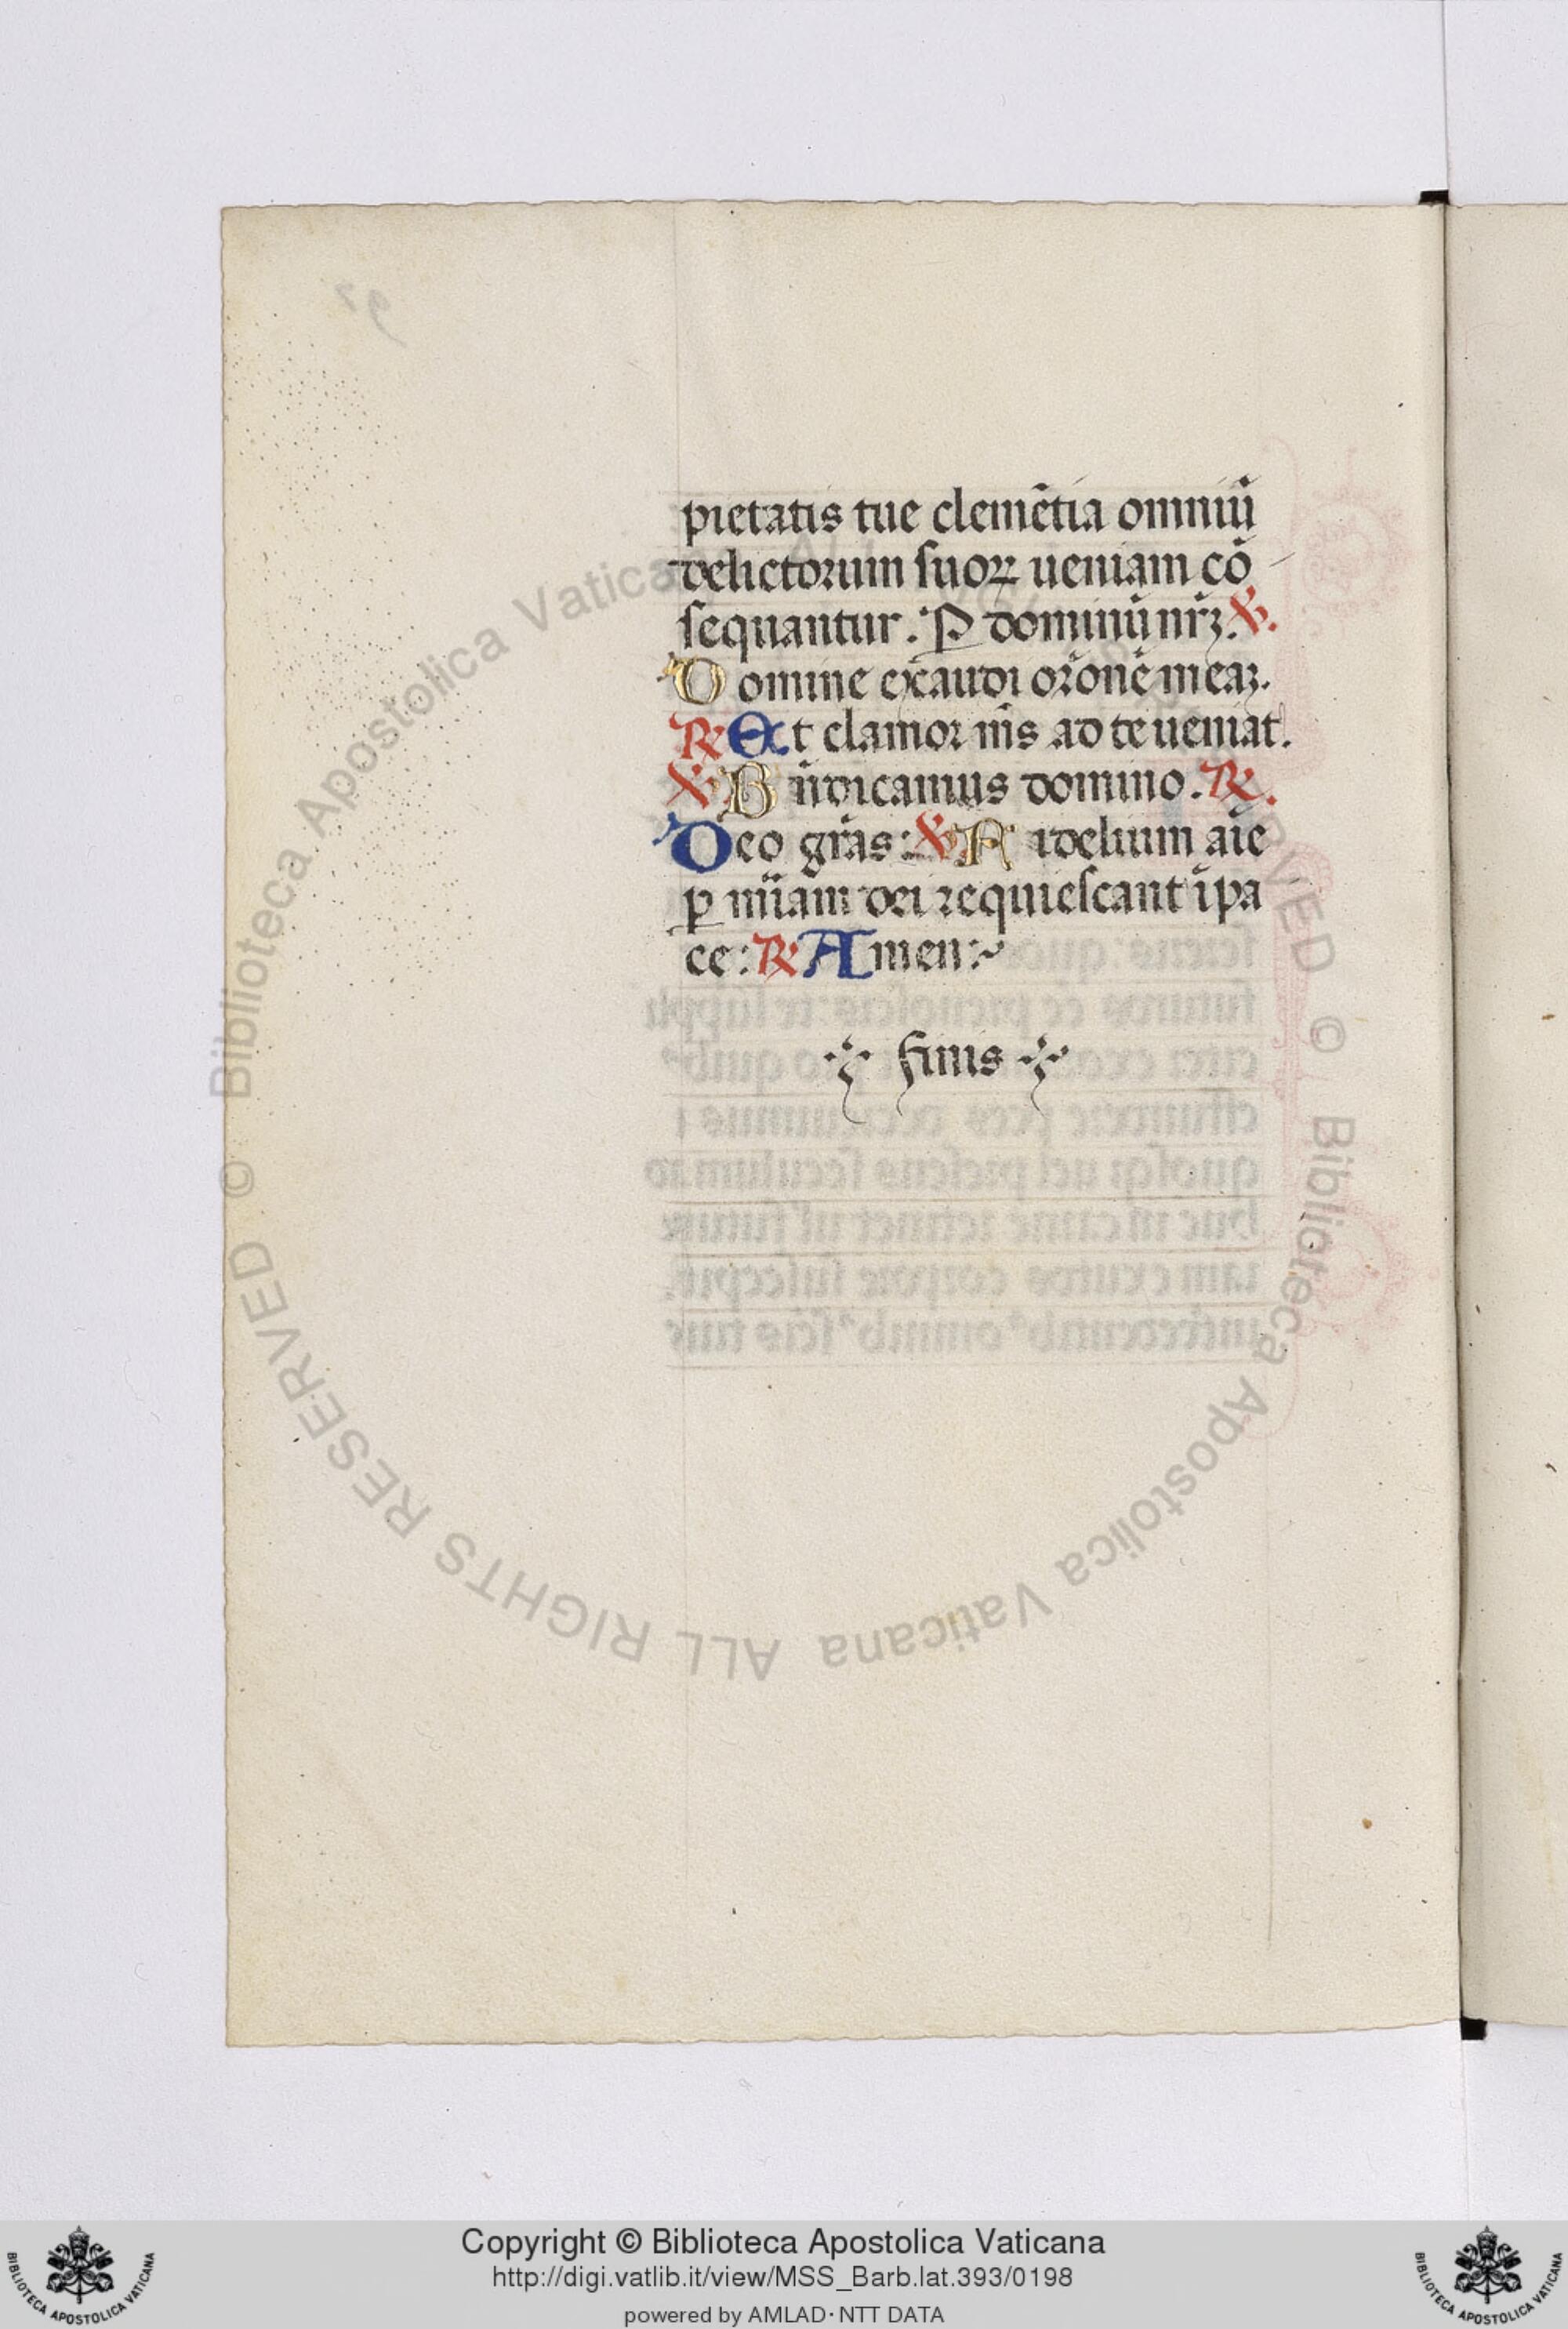 pietatis tue clemẽtia omniũ
delictorum suoꝝ ueniam cõ
sequantur. P̲ dominũ nr̃ꝫ. ℣.
Domine exaudi or̃onẽ meaꝫ.
℟ Et clamor m̃s ad te ueniat.
℣ Bñdicamus domino. ℟.
Deo gr̃as: ℣ Fidelium aĩe
ꝑ mĩam dei requiescant ĩ pa
ce: ℟ Amen:~
Finis
© Biblioteca Apostolica Vaticana ALL RIGHTS RESERVED © Biblioteca Apostolica Vaticana ALL RIGHTS RESERVED
Copyright © Biblioteca Apostolica Vaticana
http://digi.vatlib.it/view/MSS_Barb.lat.393/0198
powered by AMLAD·NTT DATA
BIBLIOTECA APOSTOLICA VATICANA
BIBLIOTECA APOSTOLICA VATICANA